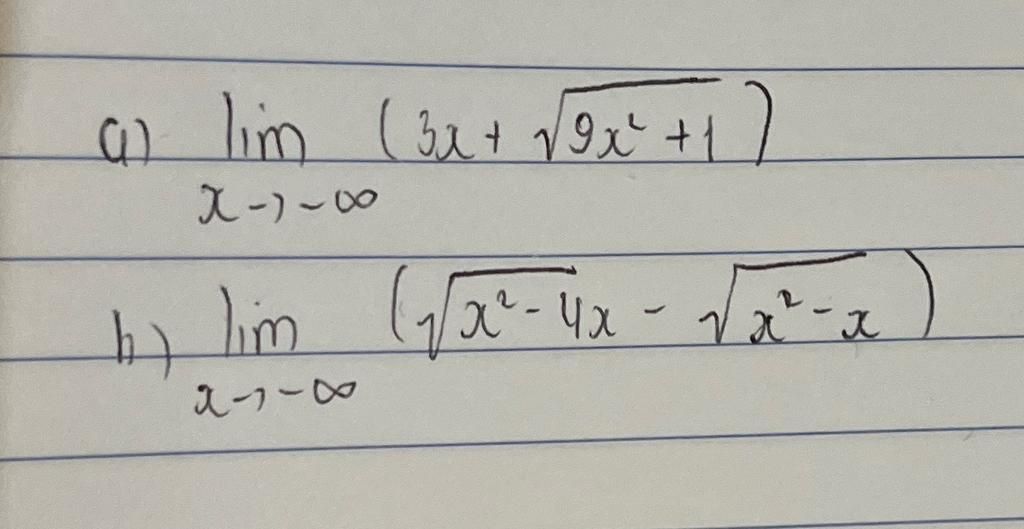 a) lim (3x + √(9x² + 1))
x → -∞
b) lim (√(x² - 4x) - √(x² - x))
x → -∞